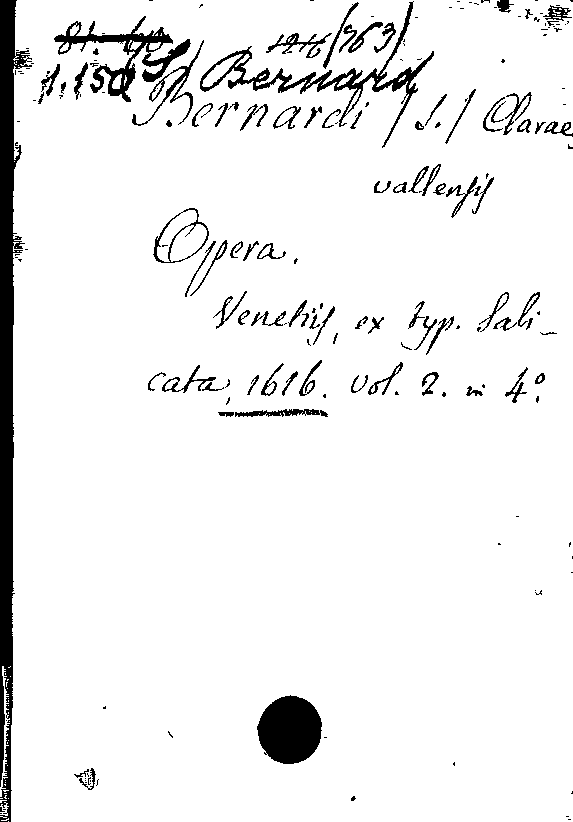 81. 40. 1216 (763)
1.150 (S) Bernard
Bernardi / S. / Clarae
vallensis
Opera.
Venetiis, ex typ. Sali-
cata, 1616. vol. 2. in 4º.